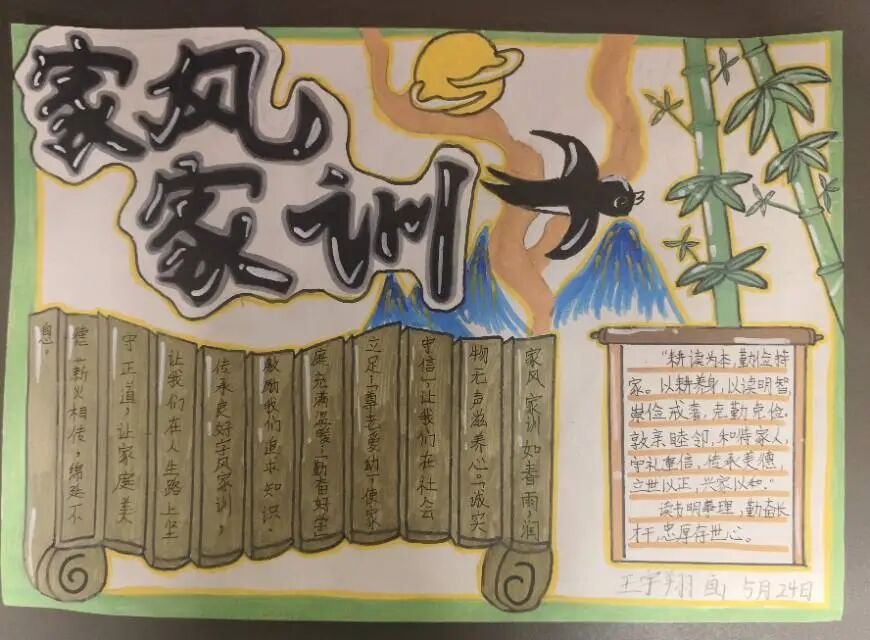 家风
家训
家风家训如春雨,润
物无声滋养心。“诚实
守信”,让我们在社会
立足;“尊老爱幼”,使家
庭充满温暖;“勤奋好学”
激励我们追求知识。
传承良好家风家训,
让我们在人生路上坚
守正道,让家庭美
德薪火相传,绵延不
息。
“耕读为本,勤俭持
家。以耕养身,以读明智,
崇俭戒奢,克勤克俭。
敦亲睦邻,和待家人,
守礼重信,传承美德,
立世以正,兴家以和。”
读书明事理,勤奋长
才干,忠厚存世心。
王宇翔画 5月24日